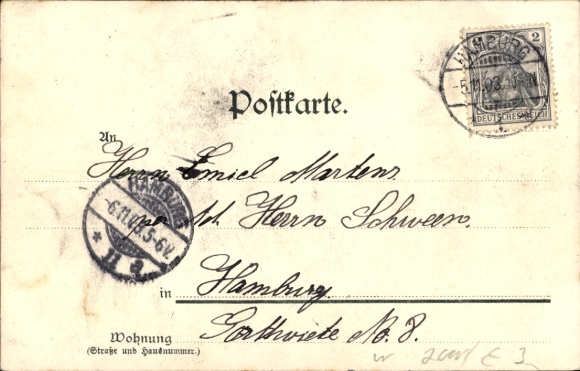 HAMBURG
-5.11.03.
2
DEUTSCHES REICH
Postkarte.
An
Herrn Emiel Martens
per Ad. Herrn Schween.
HAMBURG
-6.11.03.5-6V.
* 11 a
in Hamburg.
Wohnung
(Straße und Hausnummer.)
No. 8.
€ 3,